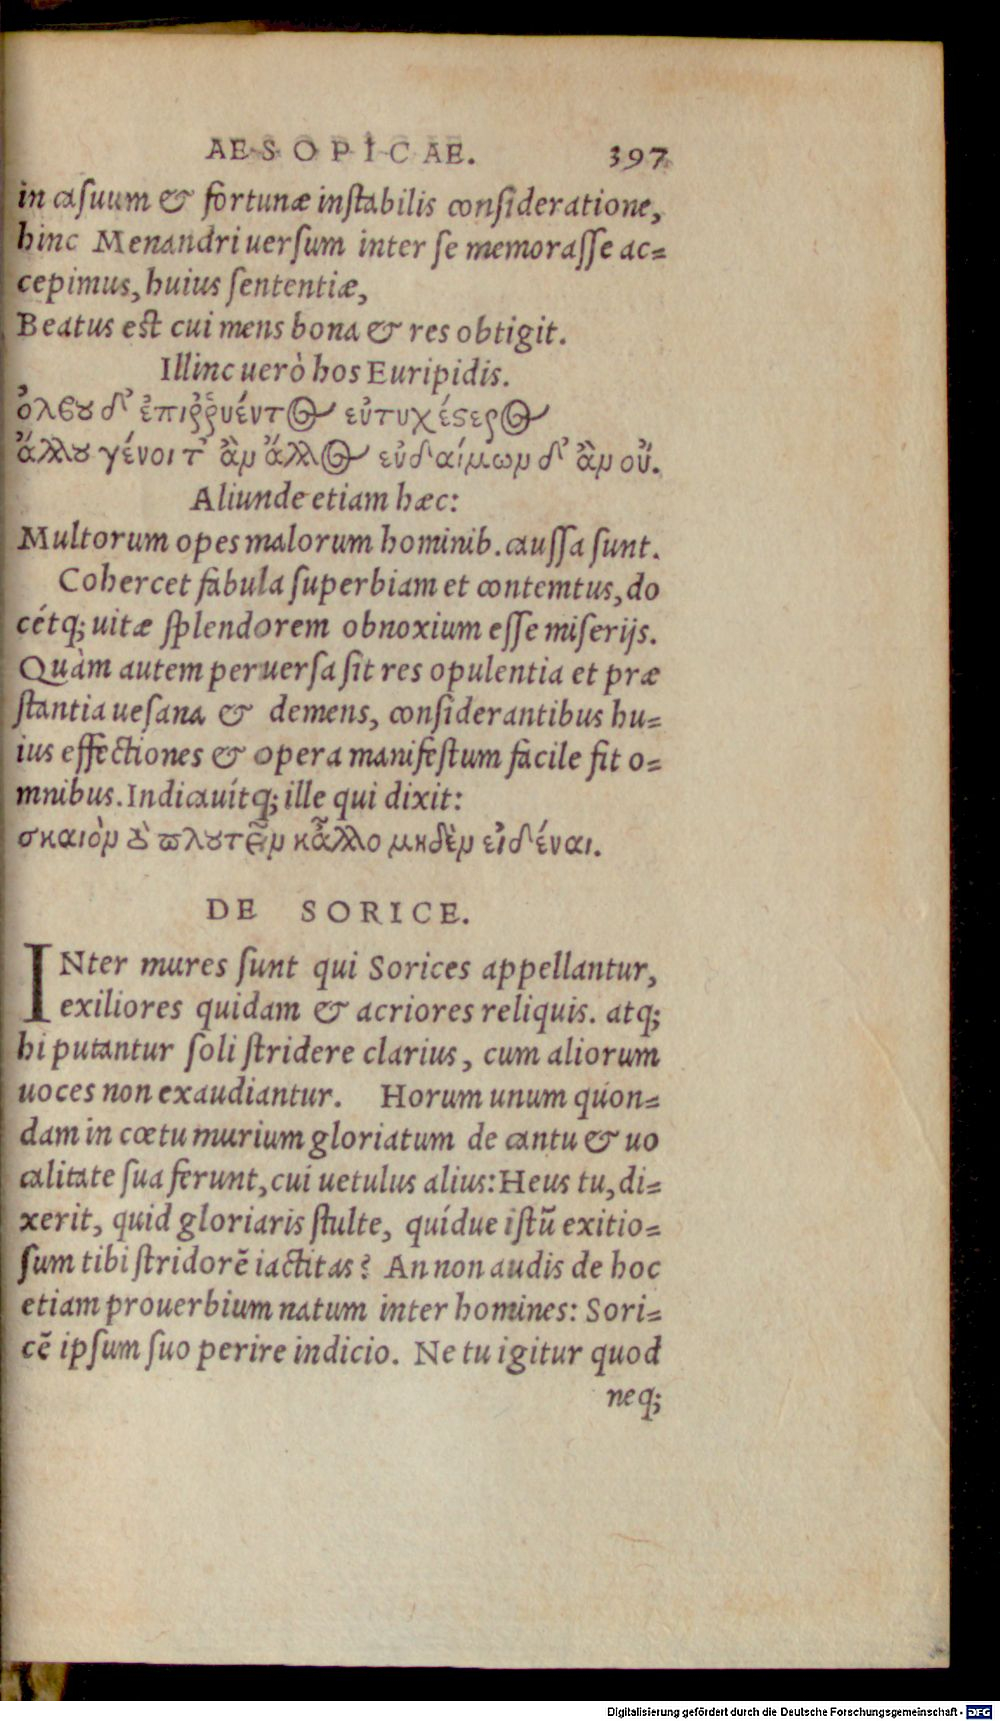 AESOPICAE. 397
in casuum & fortunæ instabilis consideratione,
hinc Menandri uersum inter se memorasse ac=
cepimus, huius sententiæ,
Beatus est cui mens bona & res obtigit.
Illinc uerò hos Euripidis.
ὄλβου δ' ἐπιῤῥυέντος εὐτυχέστερος
ἄλλου γένοιτ' ἂν ἄλλος εὐδαίμων δ' ἂν οὔ.
Aliunde etiam hæc:
Multorum opes malorum hominib. caussa sunt.
Cohercet fabula superbiam et contemtus, do
cétq; uitæ splendorem obnoxium esse miserijs.
Quàm autem peruersa sit res opulentia et præ
stantia uesana & demens, considerantibus hu=
ius effectiones & opera manifestum facile fit o=
mnibus. Indicauítq; ille qui dixit:
σκαιὸν τὸ πλουτεῖν κἄλλο μηδὲν εἰδέναι.
DE SORICE.
INter mures sunt qui Sorices appellantur,
exiliores quidam & acriores reliquis. atq;
hi putantur soli stridere clarius, cum aliorum
uoces non exaudiantur. Horum unum quon=
dam in cœtu murium gloriatum de cantu & uo
calitate sua ferunt, cui uetulus alius: Heus tu, di=
xerit, quid gloriaris stulte, quídue istũ exitio=
sum tibi stridorẽ iactitas? An non audis de hoc
etiam prouerbium natum inter homines: Sori=
cẽ ipsum suo perire indicio. Ne tu igitur quod
neq;
Digitalisierung gefördert durch die Deutsche Forschungsgemeinschaft - DFG